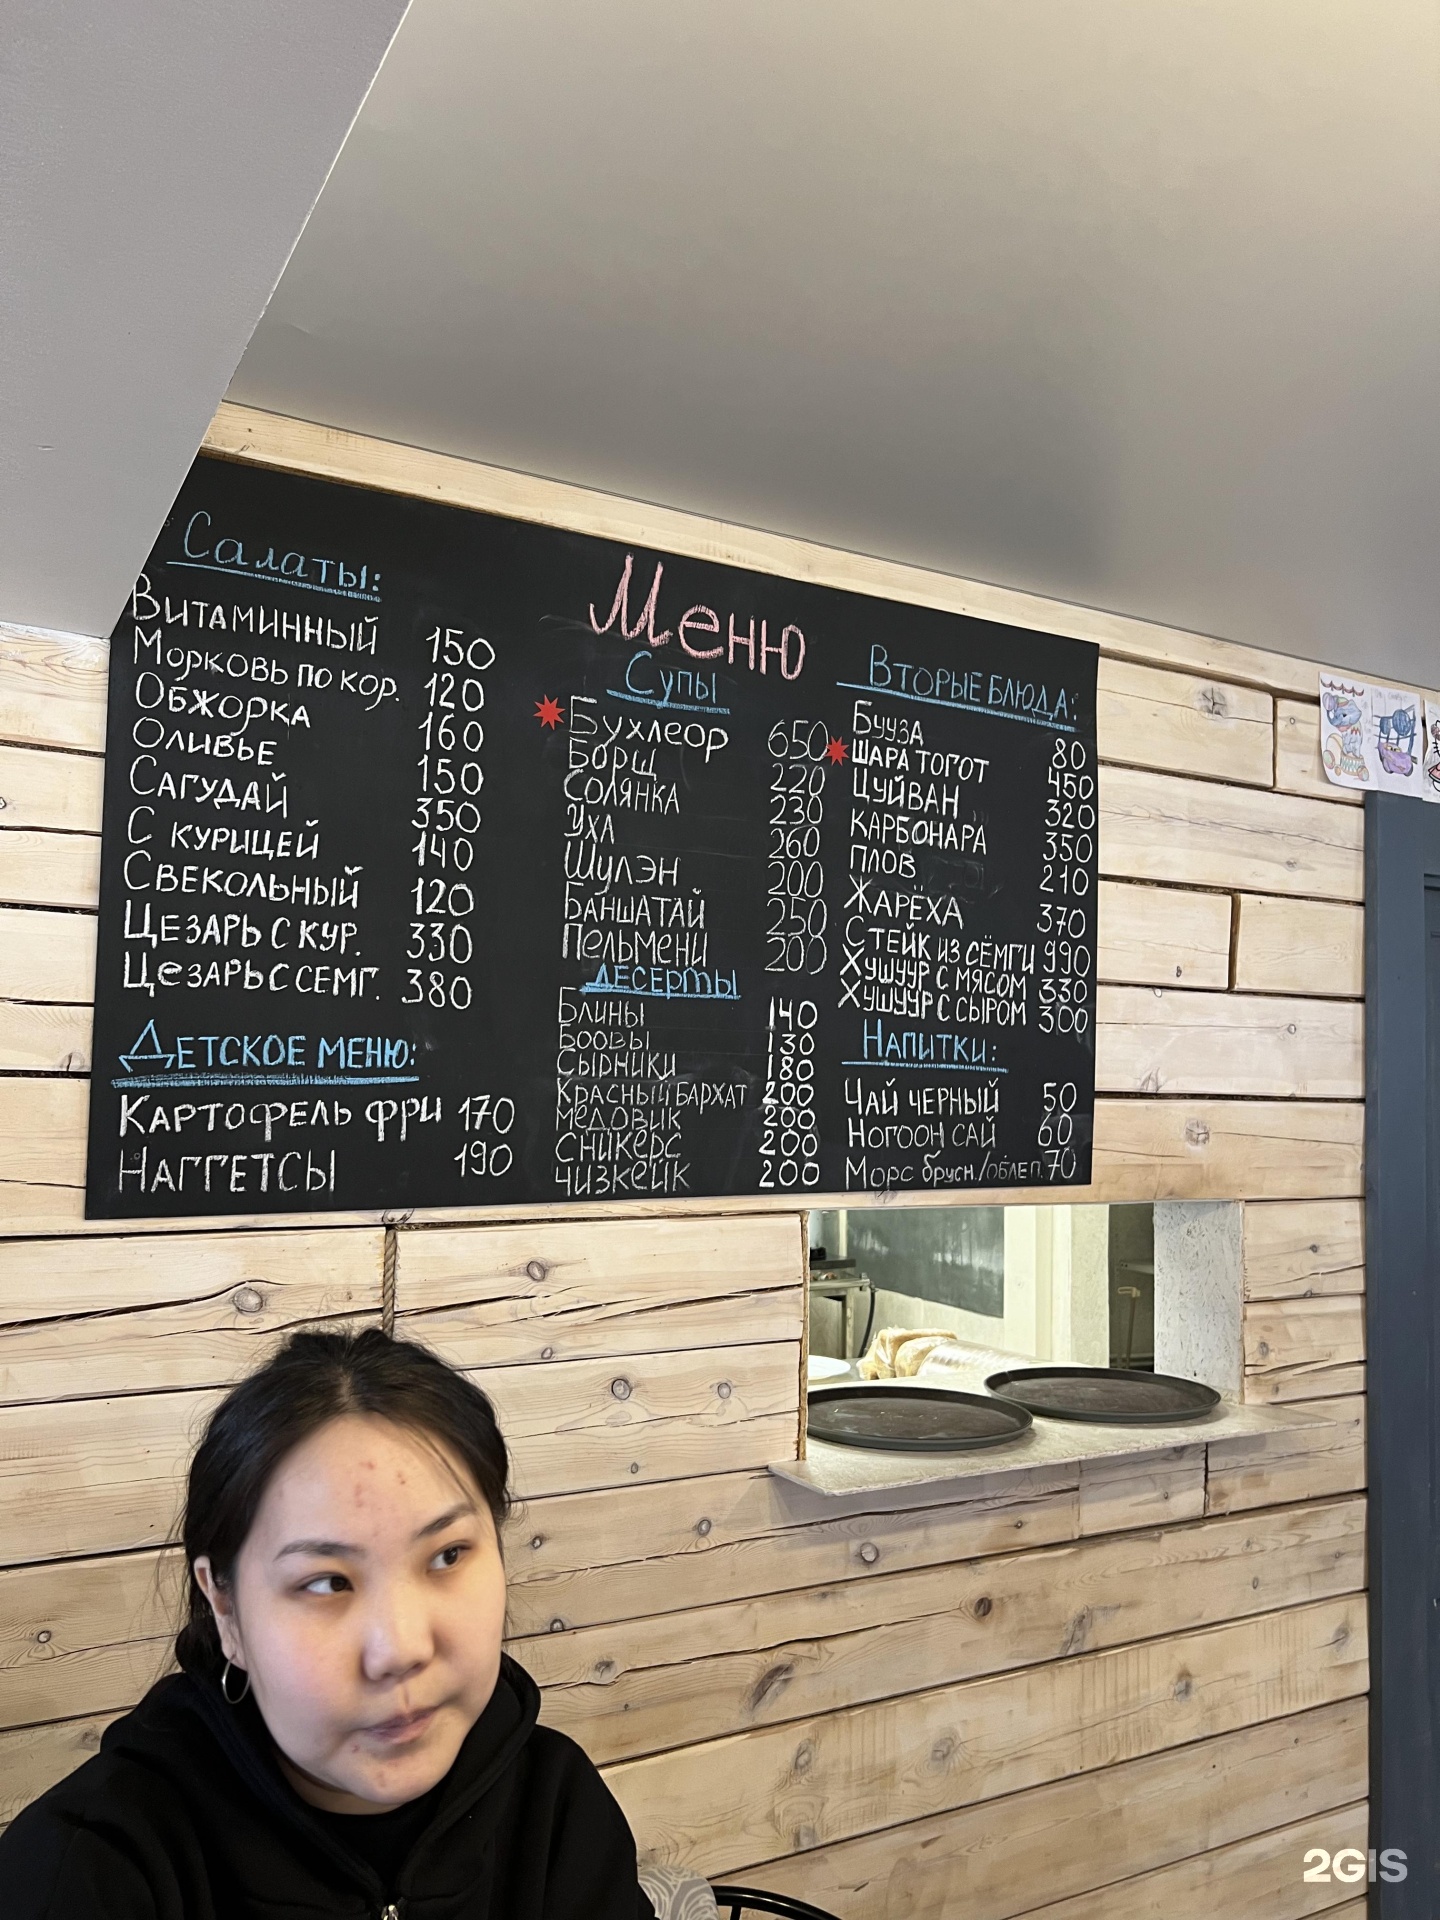 Меню
Салаты:
Витаминный 150
Морковь по кор. 120
Обжорка 160
Оливье 150
Сагудай 350
С курицей 140
Свекольный 120
Цезарь с кур. 330
Цезарь с семг. 380
Детское меню:
Картофель фри 170
Наггетсы 190
Супы
Бухлеор 650
Борщ 220
Солянка 230
Уха 260
Шулэн 200
Баншатай 250
Пельмени 200
Десерты
Блины 140
Боовы 130
Сырники 180
Красный бархат 200
Медовик 200
Сникерс 200
Чизкейк 200
Вторые блюда:
Бууза 80
Шара тогот 450
Цуйван 320
Карбонара 350
Плов 210
Жарёха 370
Стейк из сёмги 990
Хушуур с мясом 330
Хушуур с сыром 300
Напитки:
Чай черный 50
Ногоон сай 60
Морс брусн./облеп. 70
2GIS